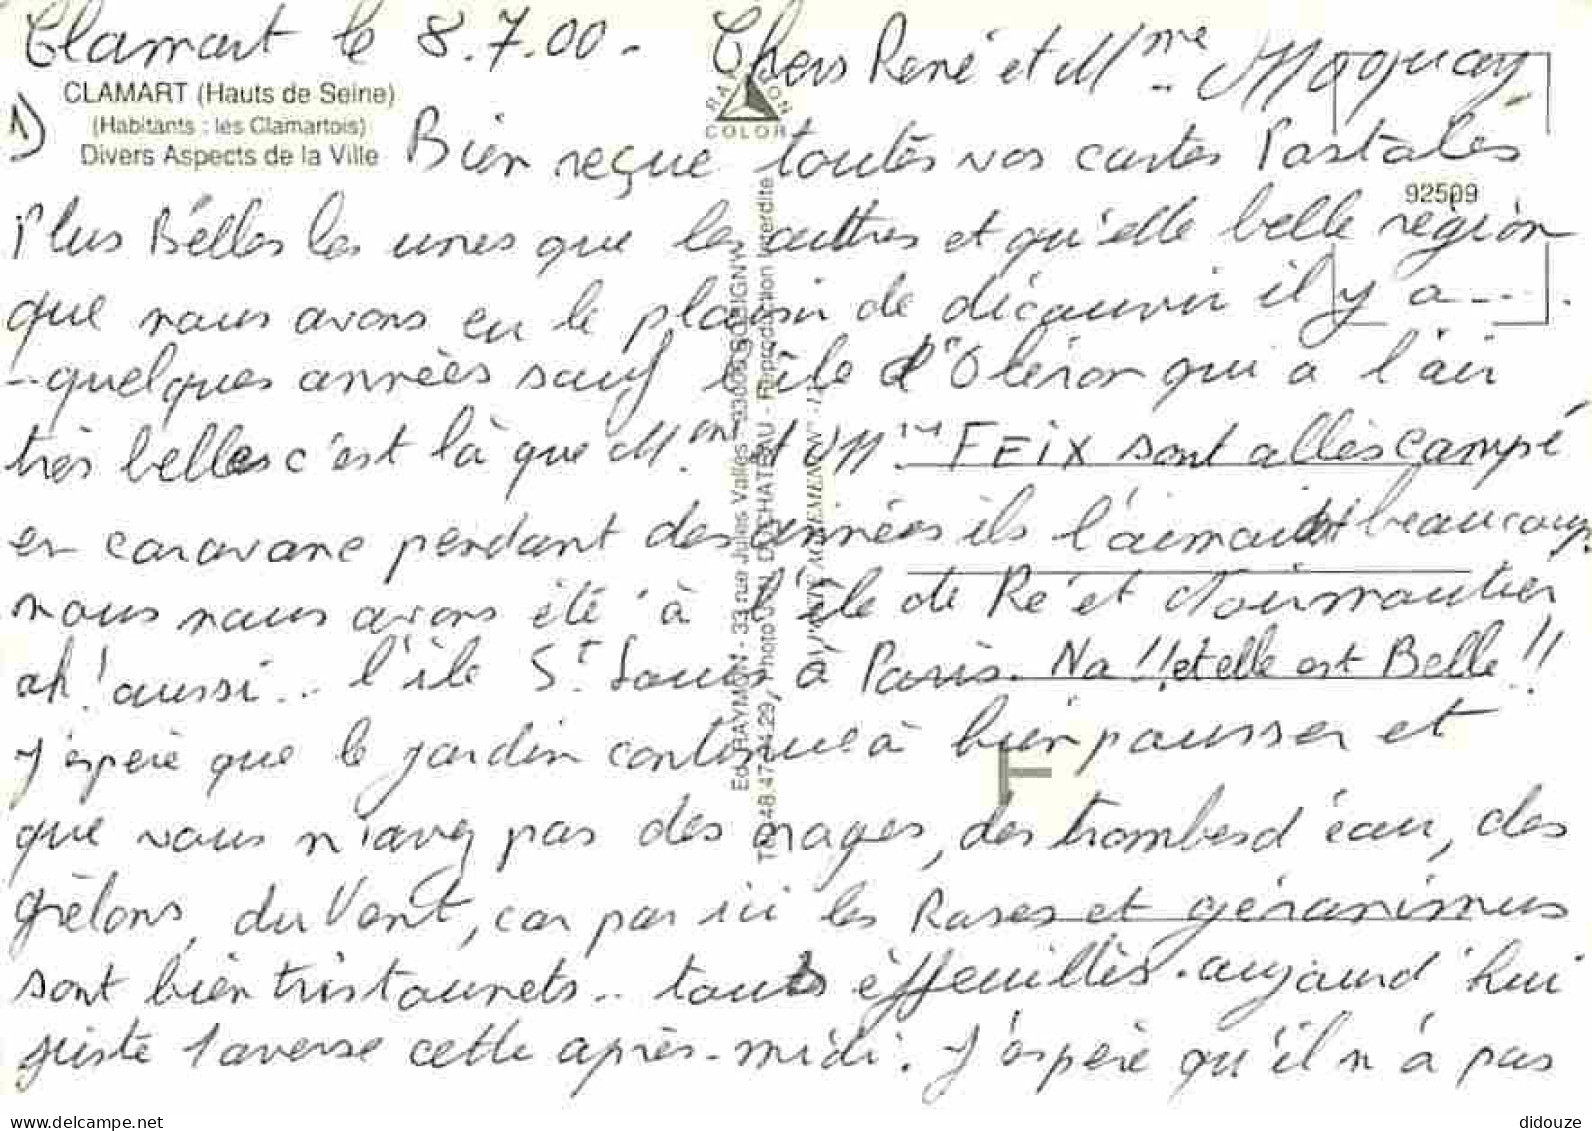 Clamart le 8.7.00. Chers René et Mme Moquay
CLAMART (Hauts de Seine)
(Habitants : les Clamartois)
Divers Aspects de la Ville
RAYMON
COLOR
92509
1) Bien reçue toutes vos cartes Postales
Plus Bélles les unes que les auttres et qu'elle belle région
que nous avons eu le plaisir de découvrir il y a ....
..quelques années sauf l'île d'Oléron qui a l'air
très belles c'est là que Mon et Mme FEIX sont allés campé
en caravane pendant des années ils l'aimait beaucoup.
nous nous avons été à l'île de Ré et Noirmoutier
ah! aussi.. l'île St Louis à Paris. Na!! et elle est Belle!!
J'espère que le jardin continue à bien pousser et
que vous n'avez pas des orages, des trombes d'eau, des
grêlons, du Vent, car par ici les Roses et géranimus
sont bien tristounets.. touts éffeuillès. aujourd'hui
juste 1 averse cette après-midi. J'espère qu'il n'a pas
Ed. RAYMON - 33 rue Jules Vallès - 93000 BOBIGNY
Photo J-N. DUCHATEAU - Reproduction Interdite
didouze
www.delcampe.net